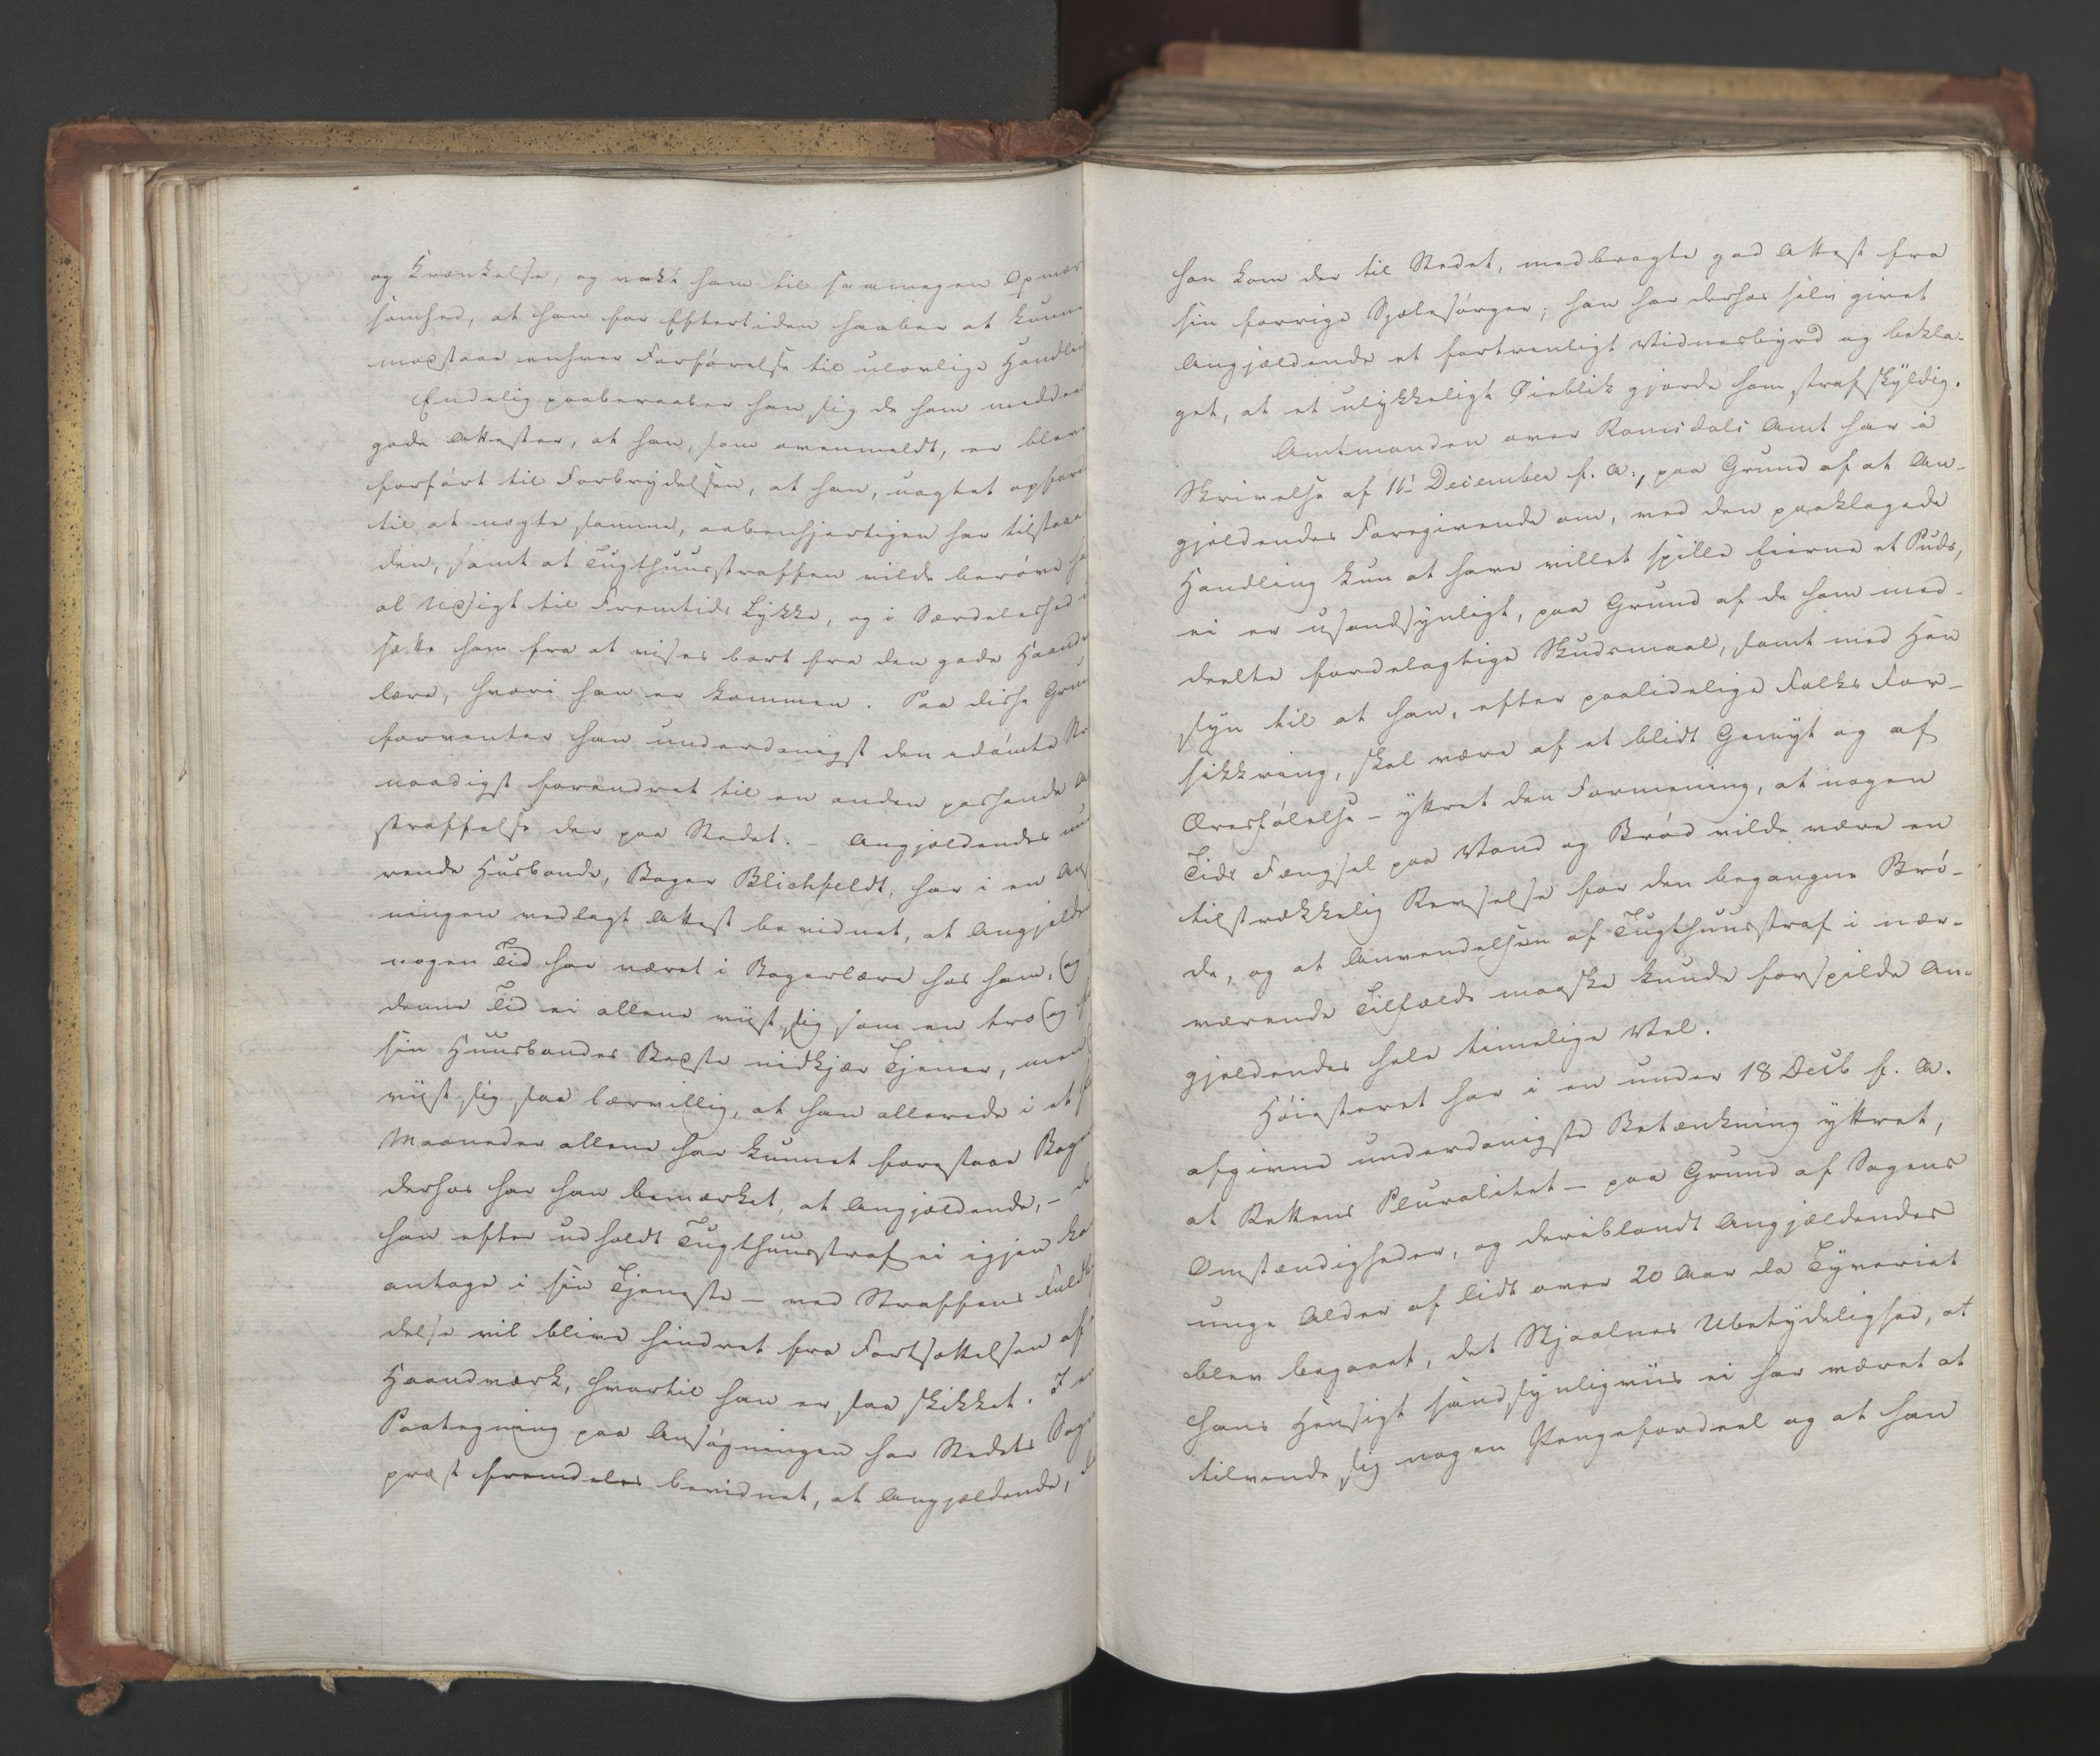 og Krænkelse, og vakt ham til saamegen Opmær
somhed, at han for Eftertiden haaber at kunne
modstaae enhver Forførelse til ulovlige Handlin
Endelig paaberaaber han sig de ham meddeel
gode Attester, at han, som ovenmeldt, er bleve
forført til Forbrydelsen, at han, uagtet opfor
til at nægte samme, aabenhjertigen har tilstaae
den, samt at Tugthuusstraffen vilde berøve ha
al Udsigt til Fremtids Lykke, og i Særdeleshed
sætte ham fra at vises bort fra den gode Haand
lære, hvori han er kommen. Paa disse Grun
forventer han underdanigst den idømte Str
naadigst forandret til en anden passende A
straffelse der paa Stedet. – Angjældendes nu
rende Huusbonde, Bager Blichfeldt, har i en An
ningen vedlagt Attest bevidnet, at Angjelde
nogen Tid har været i Bagerlære hos ham, (og
denne Tid ei allene viist sig som en tro (og f
sin Huusbondes Bedste nidkjær Tjener, men
viist sig saa lærvillig, at han allerede i et
Maaneder allene har kunnet forestaae Bag
derhos har han bemærket, at Angjældende, – d
han efter udholdt Tugthuusstraf ei igjen ka
antage i sin Tjeneste – ved Straffens Fuldby
delse vil blive hindret fra Fortsættelsen af
Haandværk, hvortil han er saa skikket. I e
Paategning paa Ansøgningen har Stedets Sogn
præst fremdeles bevidnet, at Angjældende, d
han kom der til Stedet, medbragte god Attest fra
sin forrige Sjælesørger; han har derhos selv givet
Angjældende et fortrinligt Vidnesbyrd og bekla-
get, at et ulykkeligt Øieblik gjorde ham strafskyldig.
Amtmanden over Romsdals Amt har i
Skrivelse af 16 December f. A., paa Grund af at An-
gjeldendes Foregivende om, ved den paaklagede
Handling kun at have villet spille Eierne et Puds,
ei er usandsynligt, paa Grund af de ham med-
deelte fordelagtige Skudsmaal, samt med Hen
syn til at han, efter paalidelige Folks For-
sikkring, skal være af et blidt Gemyt og af
Æresfølelse – yttret den Formening, at nogen
Tids Fængsel paa Vand og Brød vilde være en
tilstrækkelig Revselse for den begangne Brø-
de, og at Anvendelsen af Tugthuusstraf i nær-
værende Tilfælde maaske kunde forspilde An-
gjeldendes hele timelige Vel.
Høiesteret har i en under 18 Decb f. A.
afgivne underdanigste Betænkning yttret,
at Rettens Pluralitet – paa Grund af Sagens
Omstændigheder, og deriblandt Angjældendes
unge Alder af lidt over 20 Aar da Tyveriet
blev begaaet, det Stjaalnes Ubetydelighed, at
hans Hensigt sandsynligviis ei har været at
tilvende sig nogen Pengefordeel og at han